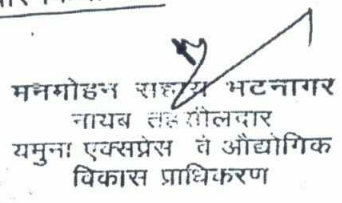 मनमोहन सहाय भटनागर
नायब तहसीलदार
यमुना एक्सप्रेस वे औद्योगिक
विकास प्राधिकरण